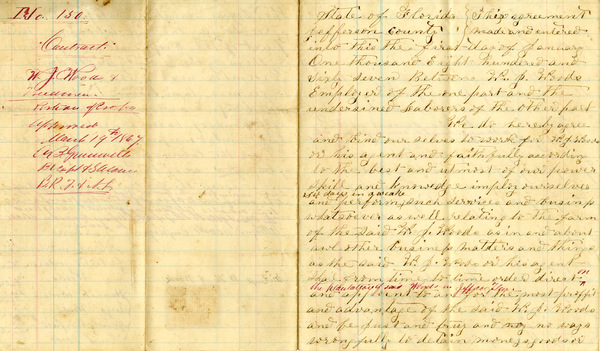 No. 150.
Contract
W. J. Woods &
Freedmen
Portion of Crops
Approved
March 19th 1867
Capt &
B.R.F. & A.L.
State of Florida } This agreement
Jefferson County } made and entered
into this the first day of January
One thousand Eight hundred and
Sixty Seven Between W. J. Woods
Employer of the one part and the
undersined Laborers of the other part
We do hereby agree
and bind our selves to work for W. J. Woods
or his agent and faithfully according
to the best and utmost of our power
skile and knowledge imploy ourselves
six days in a weake
and perform such services and business
whatsoever as well relating to the farm
of the said W. J. Woods as in and about
awl other business matters and things
as the said W. J. Woods or his agent
shal from time to time order direct
on
the plantation of said Woods in Jefferson
and appoint to and for the most proffit
and advantage of the said W. J. Woods
and be just and true and in no ways
wrongfully to detain money goods or